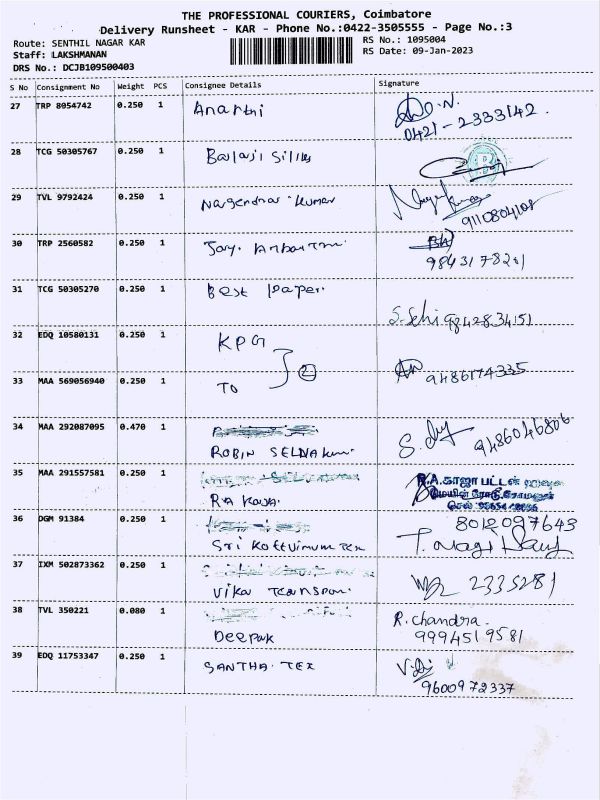 THE PROFESSIONAL COURIERS, Coimbatore
Delivery Runsheet - KAR - Phone No.:0422-3505555 - Page No.:3
Route: SENTHIL NAGAR KAR RS No.: 1095004
Staff: LAKSHMANAN RS Date: 09-Jan-2023
DRS No.: DCJB109500403
S No Consignment No Weight PCS Consignee Details Signature
27 TRP 8054742 0.250 1 Anarthi
0421-2333142.
28 TCG 50305767 0.250 1 Balaji Silks
B
29 TVL 9792424 0.250 1 Nagendra Kumar
9110804108
30 TRP 2560582 0.250 1 Jay
31 TCG 50305270 0.250 1 Best paper.
9842834151
32 EDQ 10580131 0.250 1 KPG
2
9486174335
33 MAA 569056940 0.250 1 TO
34 MAA 292087095 0.470 1
ROBIN 9486046806
35 MAA 291557581 0.250 1 R.A.காஜா பட்டன்
மெயின் ரோடு,
செல்
36 DGM 91384 0.250 1 8012097643
Sri Tex
37 IXM 502873362 0.250 1 2335281
38 TVL 350221 0.080 1 R. Chandra.
Deepak 9994519581
39 EDQ 11753347 0.250 1 SANTHA. TEX
9600972337